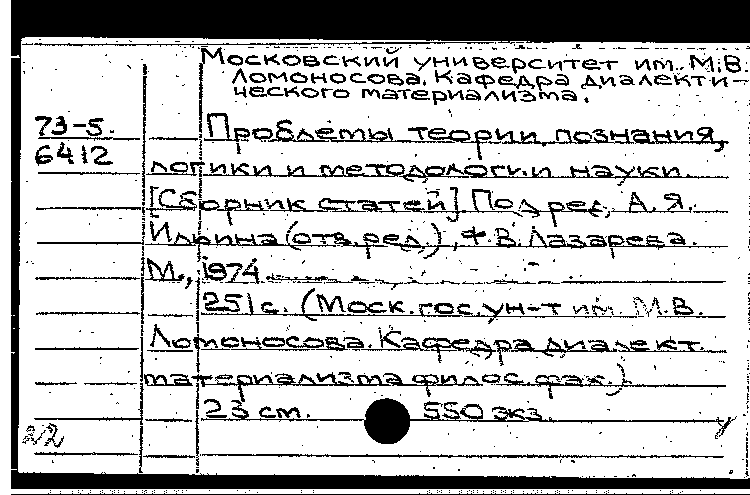 Московский университет им. М.В.
Ломоносова. Кафедра диалекти-
ческого материализма.
73-5.
6412
Проблемы теории познания,
логики и методологии науки.
[Сборник статей]. Под ред. А.Я.
Ильина (отв. ред.), Ф.В. Лазарева.
М., 1974.
251 с. (Моск. гос. ун-т им. М.В.
Ломоносова. Кафедра диалект.
материализма филос. фак.)
23 см. 550 экз.
2/2
у